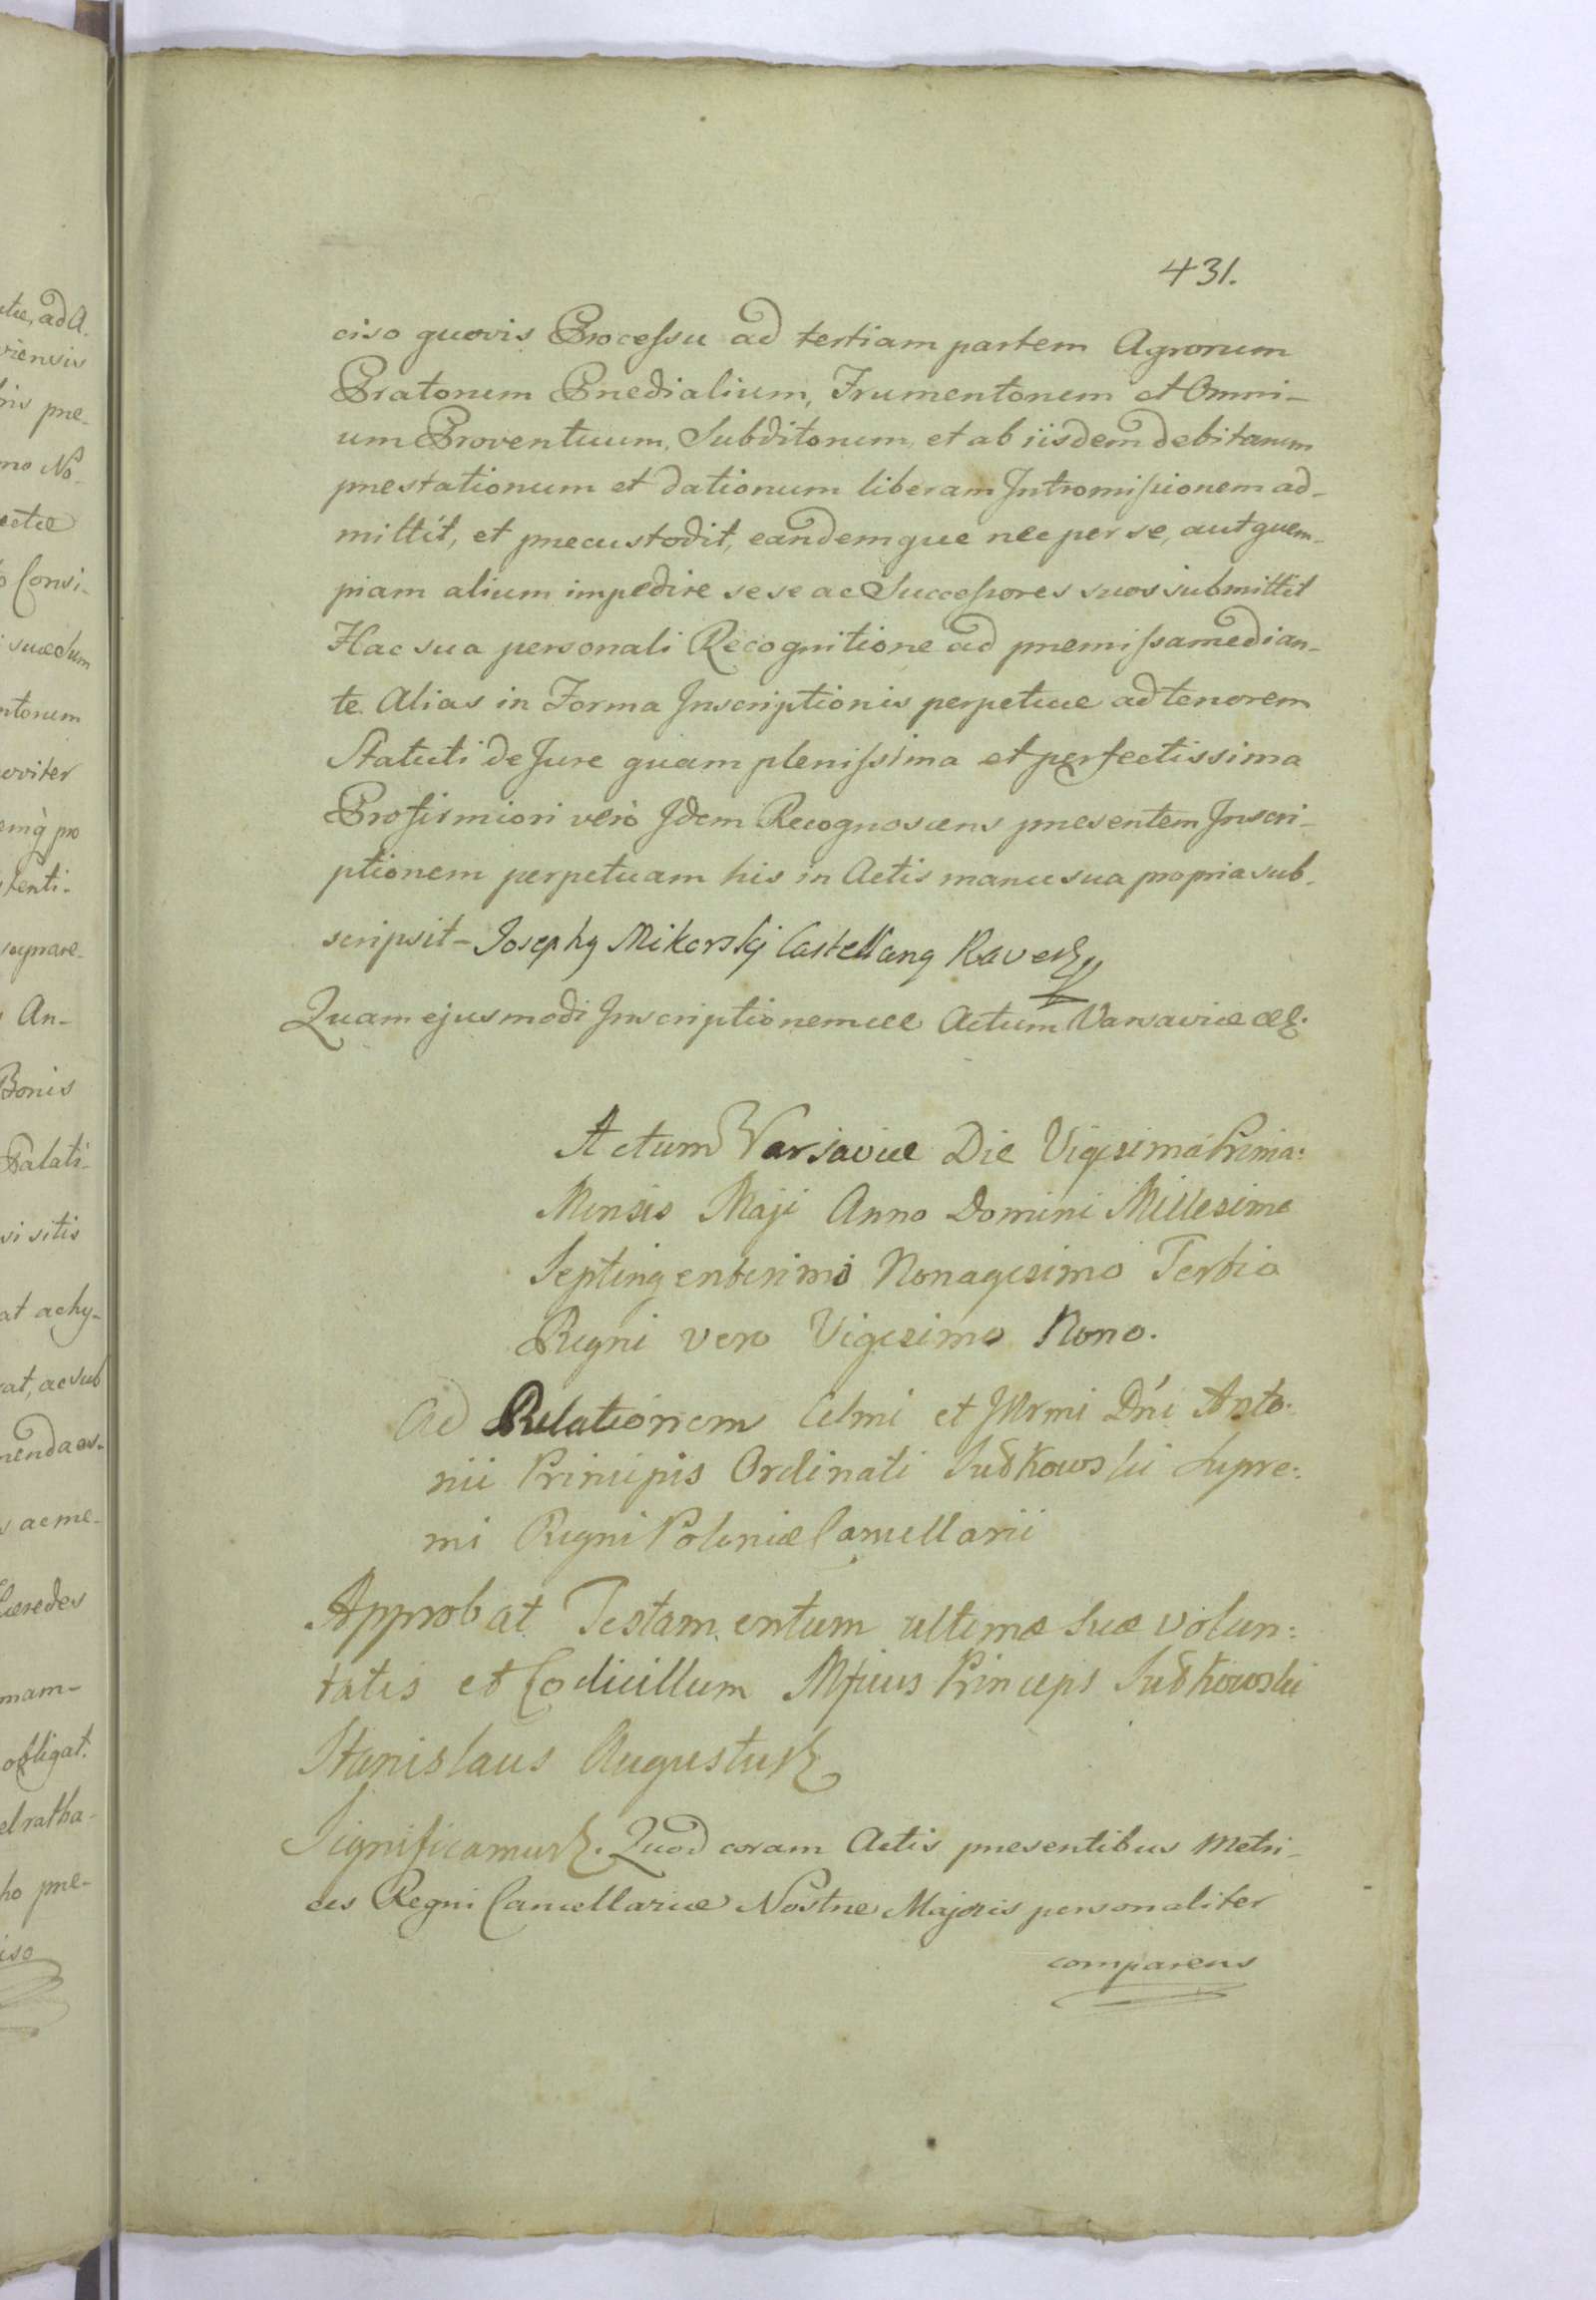 431.
ciso quovis Processu ad tertiam partem Agrorum
Pratorum Prædialium, Frumentorum et Omni-
um Proventuum, Subditorum, et ab iisdem debitarum
præstationum et dationum liberam Intromissionem ad-
mittit, et præcustodit, eandemque nec per se, aut quem-
piam alium impedire sese ac Successores suos submittit
Hac sua personali Recognitione ad præmissa median-
te. Alias in Forma Inscriptionis perpetuæ ad tenorem
Statuti de Jure quam plenissima et perfectissima
Pro firmiori verò Idem Recognoscens præsentem Inscri-
ptionem perpetuam his in Actis manu sua propria sub-
scripsit – Josephg Mikorskj Castellang Rave
Quam ejusmodi Inscriptionem Actum Varsaviæ
Actum Varsaviæ Die Vigesima Prima:
Mensis Maji Anno Domini Millesimo
Septingentesimo Nonagesimo Tertio
Regni vero Vigesimo Nono.
Ad Relationem Celmi et Illrmi Dńi Anto-
nii Principis Ordinati Sułkowski Supre:
mi Regni Poloniæ Cancellarii
Approbat Testamentum ultimæ suæ volun:
tatis et Codicillum Princeps Sułkowski
Stanislaus Augustus
Significamus. Quod coram Actis præsentibus Metri-
ces Regni Cancellariæ Nostræ Majoris personaliter
comparens
ad A.
viensis
præ-
mo No-
Consi-
suæ Sum
pro
tenti-
An-
Bonis
Palati-
sitis
at ac hy-
at, ac sub
ac me-
Hæredes
mam-
obligat.
præ-
ciso